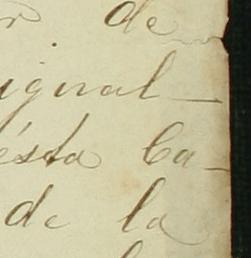 r de
ignal
ésta Ca-
de la